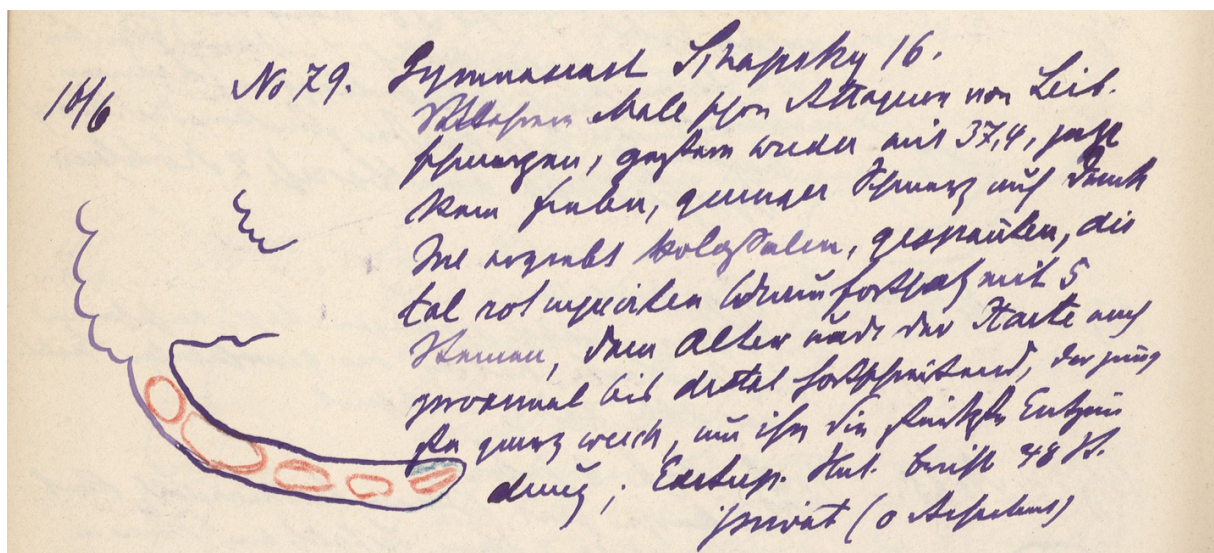 18/6 No 79. Gymnasiast 16.
Mehrere Male schon Attaquen von Leib-
schmerzen, gestern wieder mit 37,4, jetzt
kein Fieber, geringer Schmerz auf Druck
Inc ergiebt kolossalen, gespannten, dis
tal rot injicirten Wurmfortsatz mit 5
Steinen, dem Alter nach der Härte nach
proximal bis distal fortschreitend, der jüng
ste ganz weich, um ihn die stärkste Entzün
dung; Exstirp. Hat 48 St.
privat